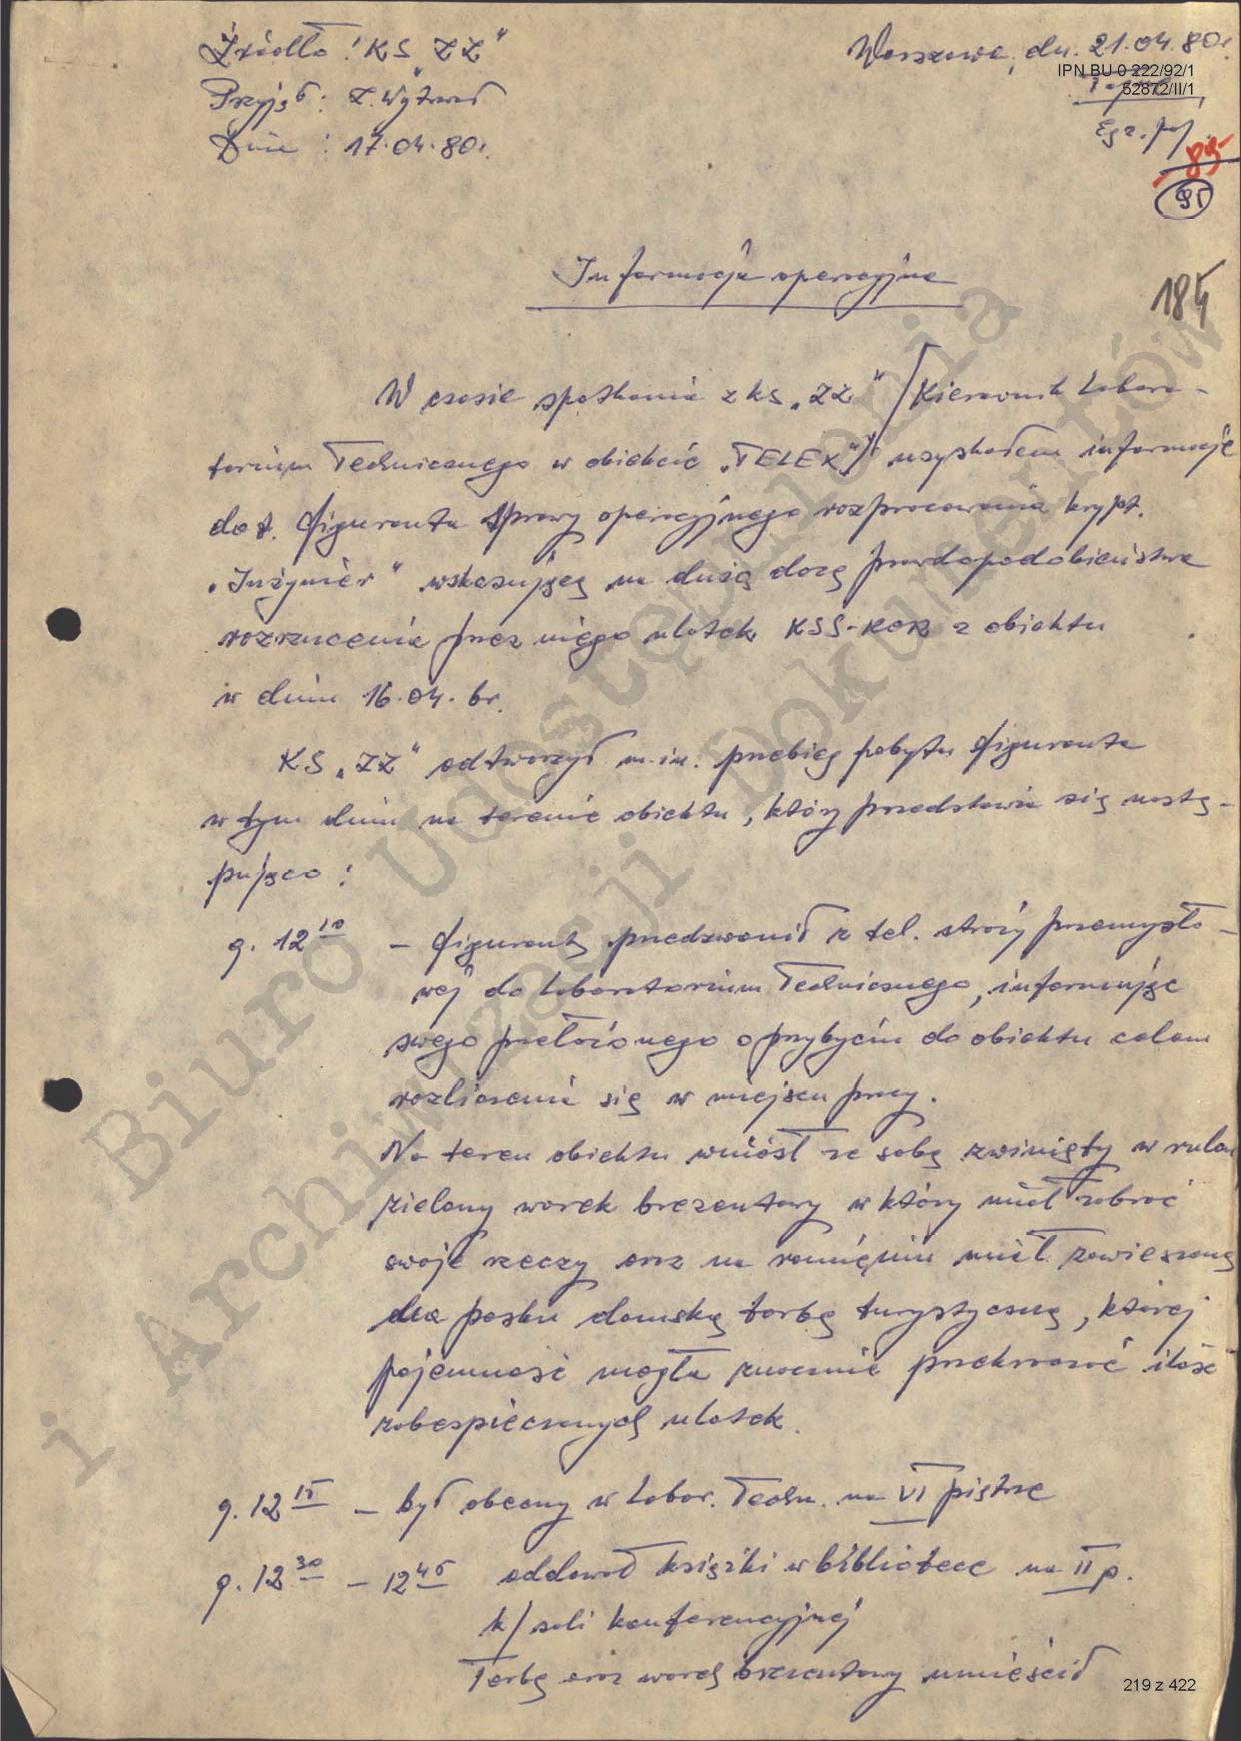 Źródło: KS "ZZ"
Warszawa, dn. 21.04.80r.
IPN BU 0 222/92/1
52872/II/1
Przyjął: Z. Wytrwał
Dnia: 17.04.80r.
Egz. poj.
85
95
184
Informacja operacyjna
W czasie spotkania z KS "ZZ" /Kierownik Labora-
torium Technicznego w obiekcie "TELEX"/ uzyskałem informację
dot. figuranta sprawy operacyjnego rozpracowania krypt.
"Inżynier" wskazującą na dużą dozę prawdopodobieństwa
rozrzucenia przez niego ulotek KSS-KOR z obiektu
w dniu 16.04. br.
KS "ZZ" odtworzył m.in. przebieg pobytu figuranta
w tym dniu na terenie obiektu, który przedstawia się nastę-
pująco:
g. 12 10 – figurant przedzwonił z tel. straży przemysło-
wej do Laboratorium Technicznego, informując
swego przełożonego o przybyciu do obiektu celem
rozliczenia się w miejscu pracy.
Na teren obiektu wniósł ze sobą zwinięty w rulon
zielony worek brezentowy w który miał zabrać
swoje rzeczy oraz na ramieniu miał zawieszoną
na pasku damską torbę turystyczną, której
pojemność mogła znacznie przekraczać ilość
zabezpieczonych ulotek.
g. 12 15 – był obecny w Labor. Techn. na VI piętrze
g. 12 30 – 12 45 oddawał książki w bibliotece na II p.
k/sali konferencyjnej
Torbę oraz worek brezentowy umieścił
219 z 422
Biuro Udostępniania
i Archiwizacji Dokumentów